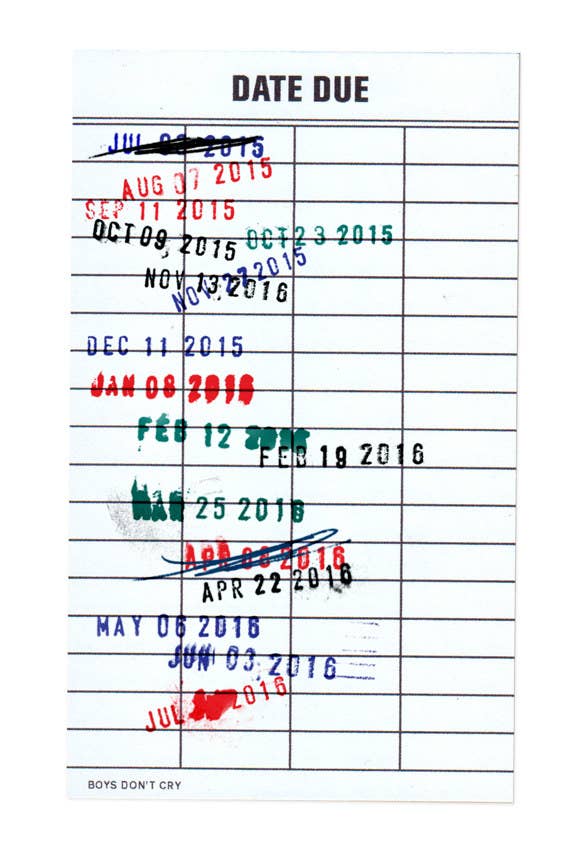 DATE DUE
JUL 2015
AUG 07 2015
SEP 11 2015
OCT 09, 2015
OCT 23 2015
NOV 27 2015
NOV 13, 2016
DEC 11 2015
JAN 08 2016
FEB 12 2016
FEB 19 2016
MAR 25 2016
APR 08 2016
APR 22 2016
MAY 06 2016
JUN 03, 2016
JUL 2016
BOYS DON'T CRY